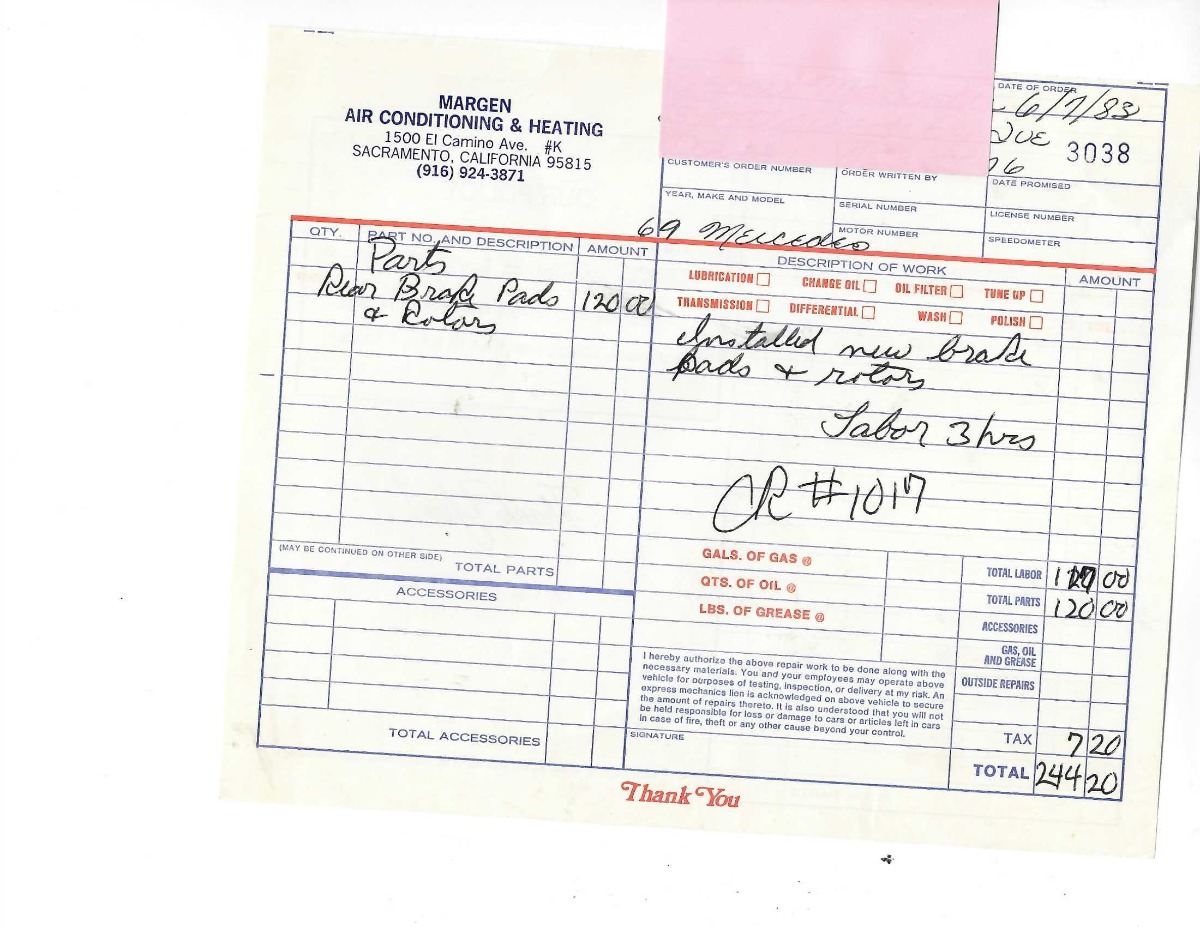 MARGEN
AIR CONDITIONING & HEATING
1500 El Camino Ave. #K
SACRAMENTO, CALIFORNIA 95815
(916) 924-3871
DATE OF ORDER
6/7/83
3038
CUSTOMER'S ORDER NUMBER
ORDER WRITTEN BY
DATE PROMISED
YEAR, MAKE AND MODEL
69 Mercedes
SERIAL NUMBER
LICENSE NUMBER
MOTOR NUMBER
SPEEDOMETER
QTY. PART NO. AND DESCRIPTION AMOUNT
Parts
Rear Brake Pads 120 00
& Rotors
DESCRIPTION OF WORK AMOUNT
LUBRICATION CHANGE OIL OIL FILTER TUNE UP
TRANSMISSION DIFFERENTIAL WASH POLISH
Installed new brake
pads & rotors
Labor 3 hrs
#1017
(MAY BE CONTINUED ON OTHER SIDE)
TOTAL PARTS
ACCESSORIES
TOTAL ACCESSORIES
GALS. OF GAS @
QTS. OF OIL @
LBS. OF GREASE @
TOTAL LABOR 117 00
TOTAL PARTS 120 00
ACCESSORIES
GAS, OIL
AND GREASE
OUTSIDE REPAIRS
I hereby authorize the above repair work to be done along with the
necessary materials. You and your employees may operate above
vehicle for purposes of testing, inspection, or delivery at my risk. An
express mechanics lien is acknowledged on above vehicle to secure
the amount of repairs thereto. It is also understood that you will not
be held responsible for loss or damage to cars or articles left in cars
in case of fire, theft or any other cause beyond your control.
SIGNATURE
TAX 7 20
TOTAL 244 20
Thank You